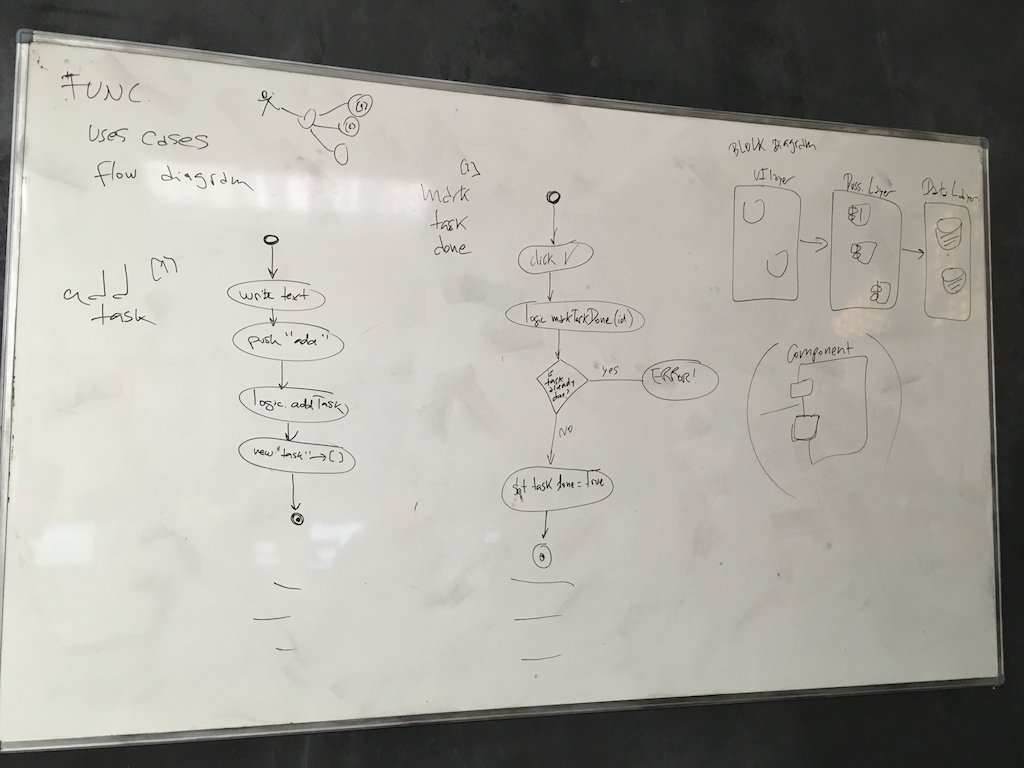 FUNC.
Uses Cases
flow diagram
add [1]
task
write text
push "add"
logic.addTask
new "task" → [ ]
mark
task
done
click V
logic.markTaskDone(id)
is
task
already
done?
yes
ERROR!
NO
set task done = True
Block Diagram
UI Layer
Layer
Data Layer
Component